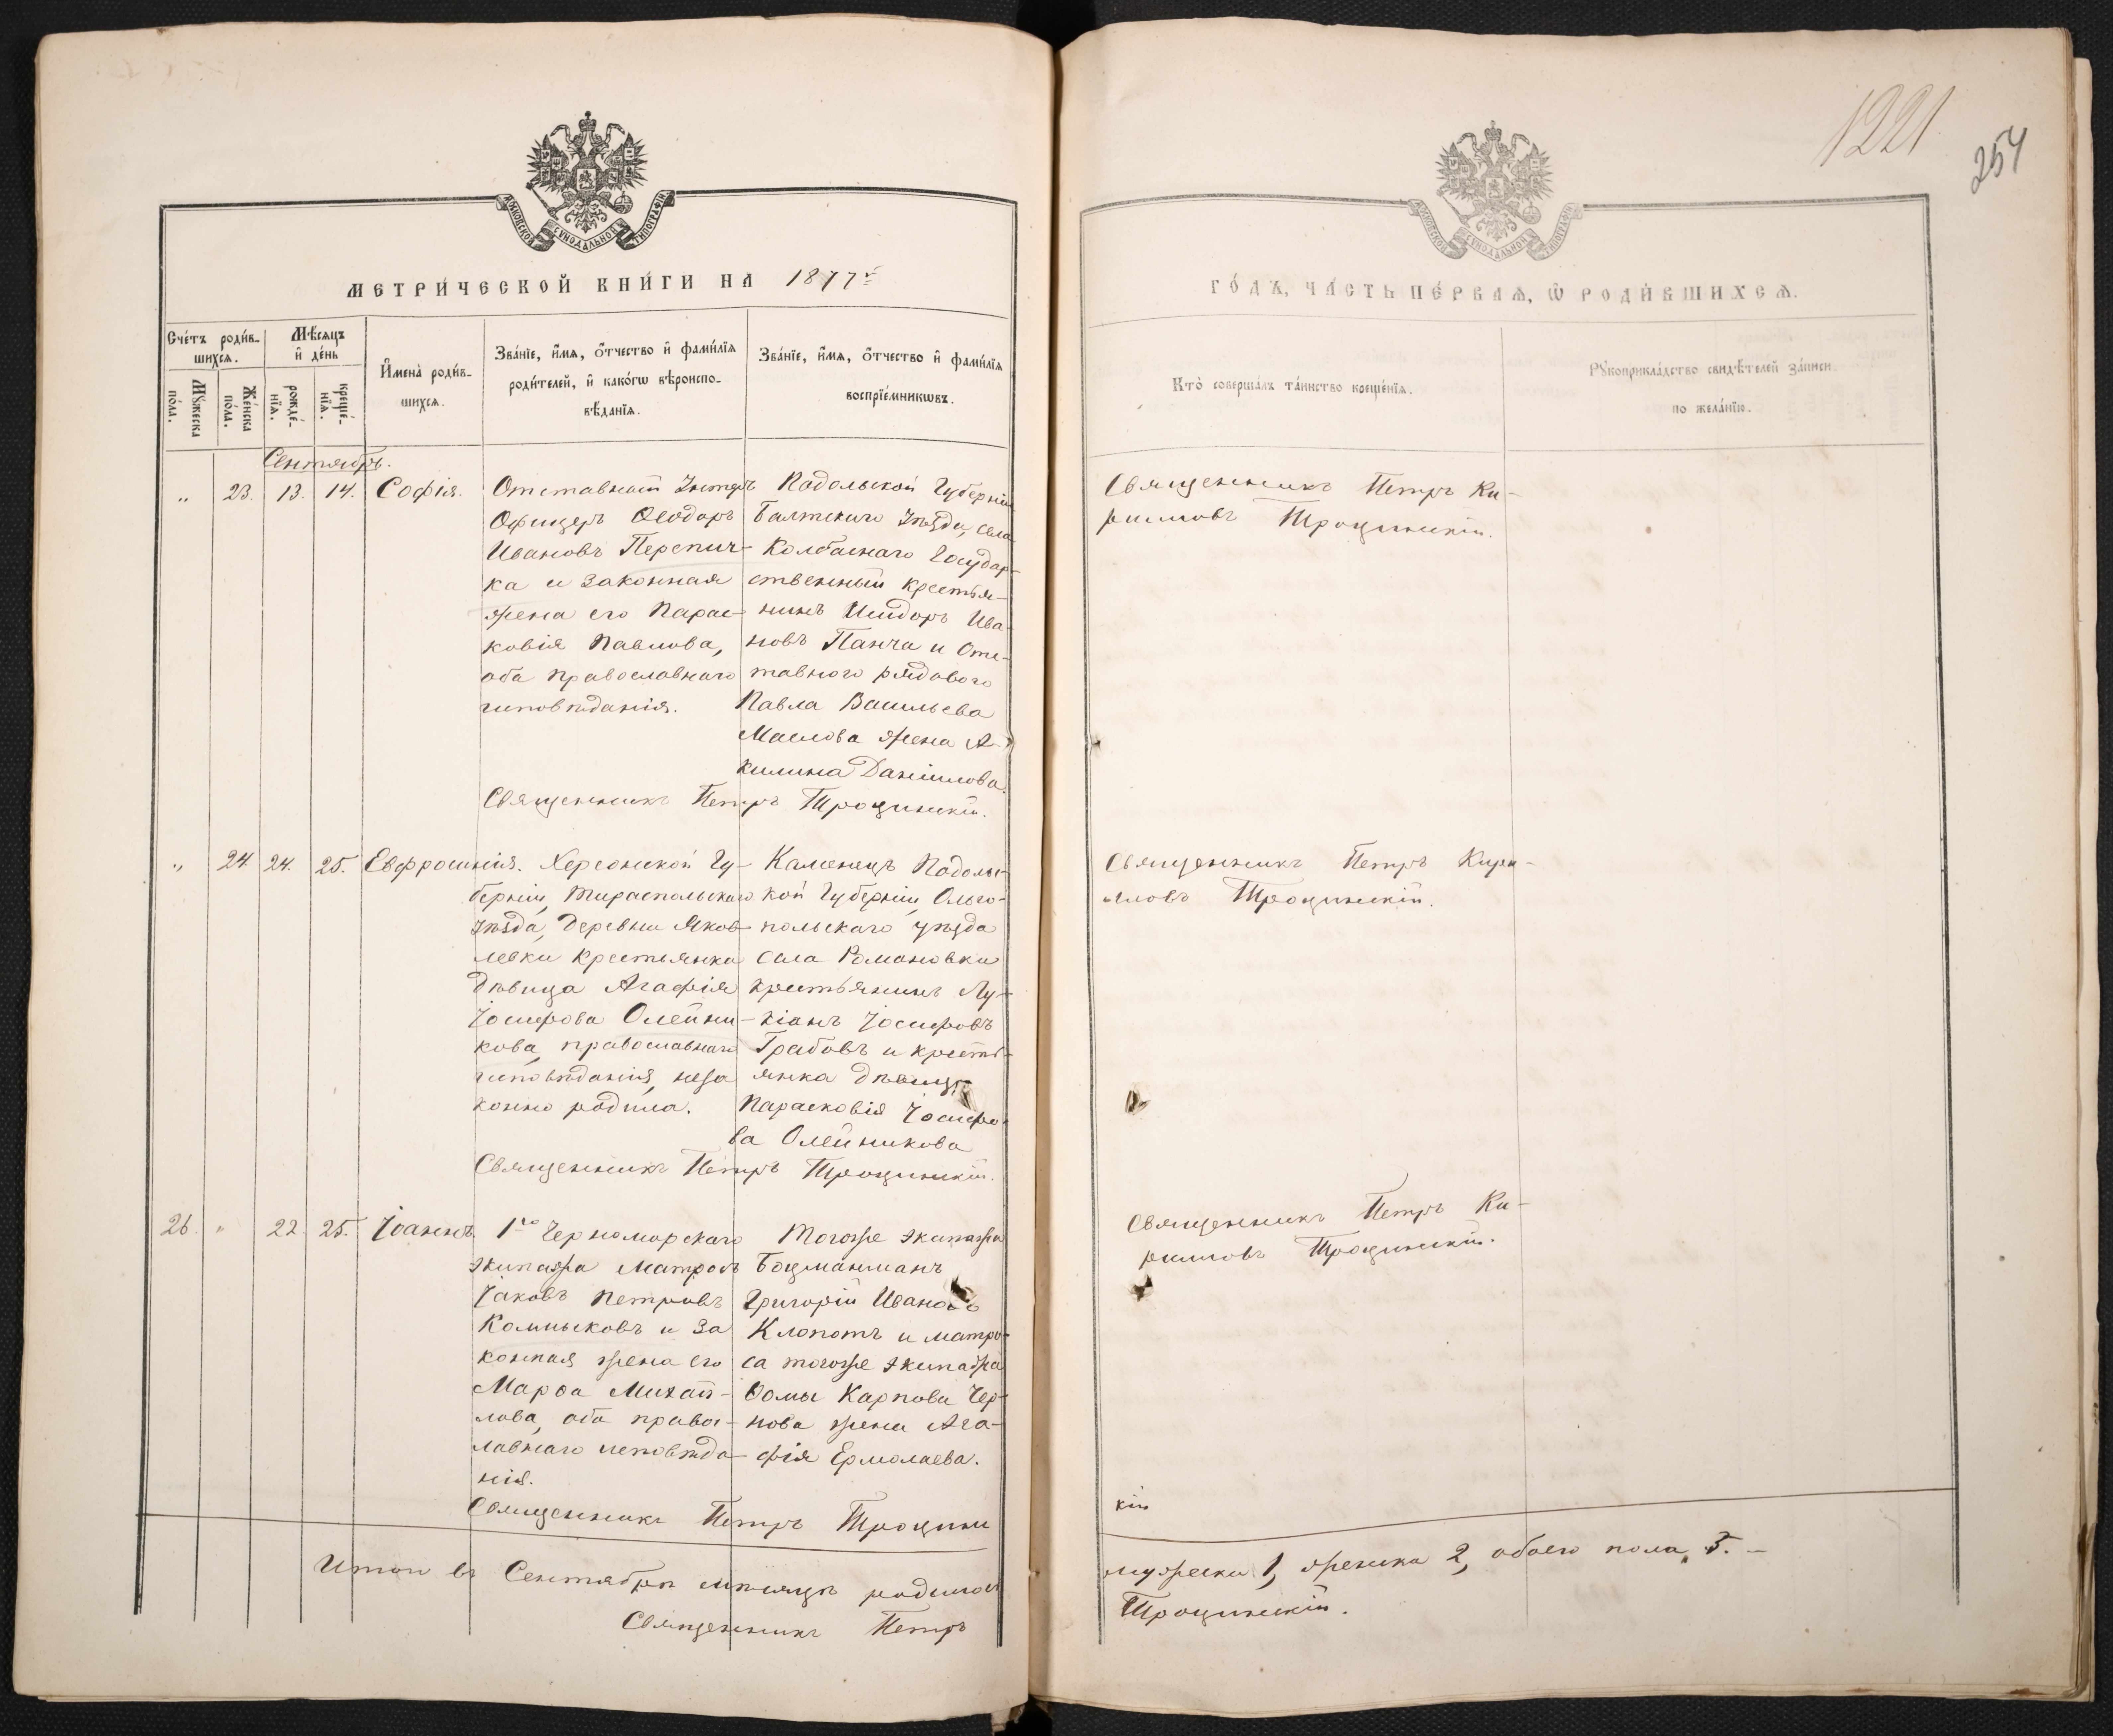 1221
254
МОСКОВСКОЙ СѴНОДАЛЬНОЙ ТИПОГРАФІИ
МОСКОВСКОЙ СѴНОДАЛЬНОЙ ТИПОГРАФІИ
МЕТРИ́ЧЕСКОЙ КНИ́ГИ НА 1877й
ГО́ДЪ, ЧА́СТЬ ПЕ́РВАѦ, Ѡ҆ РОДИ́ВШИХСѦ.
Сче́тъ роди́в-
шихсѧ.
Мꙋ́жеска
по́ла.
Же́нска
по́ла.
Мѣ́сяцъ
и҆ де́нь
рожде́-
нїѧ.
креще́-
нїѧ.
И҆мена̀ роди́в-
шихсѧ.
Зва́нїе, и҆́мѧ, ѻ҆́тчество и҆ фами́лїѧ
роди́телей, и҆ како́гѡ вѣроиспо-
вѣ́данїѧ.
Зва́нїе, и҆́мѧ, ѻ҆́тчество и҆ фами́лїѧ
воспрїе́мникѡвъ.
Кто̀ соверша́лъ та́инство креще́нїѧ.
Рꙋкоприкла́дство свидѣ́телей за́писи
по жела́нїю.
Сентябрь.
" 23. 13. 14. Софія.
Отставной Унтеръ
Офицеръ Ѳеодоръ
Ивановъ Перепич-
ка и законная
жена его Парас-
ковія Павлова,
оба православнаго
исповѣданія.
Подольской Губерніи
Балтскаго Уѣзда, села
Колбаснаго Государ-
ственный крестья-
нинъ Исидоръ Ива-
новъ Панча и Отс-
тавного рядового
Павла Васильева
Маслова жена А-
килина Даніилова.
Священникъ Петръ Троцинскій.
Священникъ Петръ Ки-
рилловъ Троцинскій.
" 24 24. 25. Евфросинія.
Херсонской Гу-
берніи, Тираспольскаго
Уѣзда, деревни Яков-
левки крестьянка
дѣвица Агафія
Іосифова Олейни-
кова, православнаго
исповѣданія, неза
конно родила.
Каменецъ Подольс-
кой Губерніи, Ольго-
польскаго уѣзда
села Романовки
крестьянинъ Лу-
кіанъ Іосифовъ
Грабовъ и кресть-
янка дѣвица
Парасковія Іосифо-
ва Олейникова
Священникъ Петръ Троцинскій.
Священникъ Петръ Кири-
лловъ Троцинскій.
26. " 22. 25. Іоаннъ.
1го Черноморскаго
экипажа матросъ
Іаковъ Петровъ
Колпыковъ и за
конная жена его
Марѳа Михай-
лова, оба правос-
лавнаго исповѣда-
нія.
Тогоже экипажа
Боцманманъ
Григорій Ивановъ
Клопотъ и матро-
са тогоже экипажа
Ѳомы Карпова Чер-
нова жена Ага-
фія Ермолаева.
Священникъ Петръ Троцинс
кій
Священникъ Петръ Ки-
рилловъ Троцинскій.
Итого въ Сентябрѣ мѣсяцѣ родилось
мужеска 1, женска 2, обоего пола 3. -
Священникъ Петръ
Троцинскій.